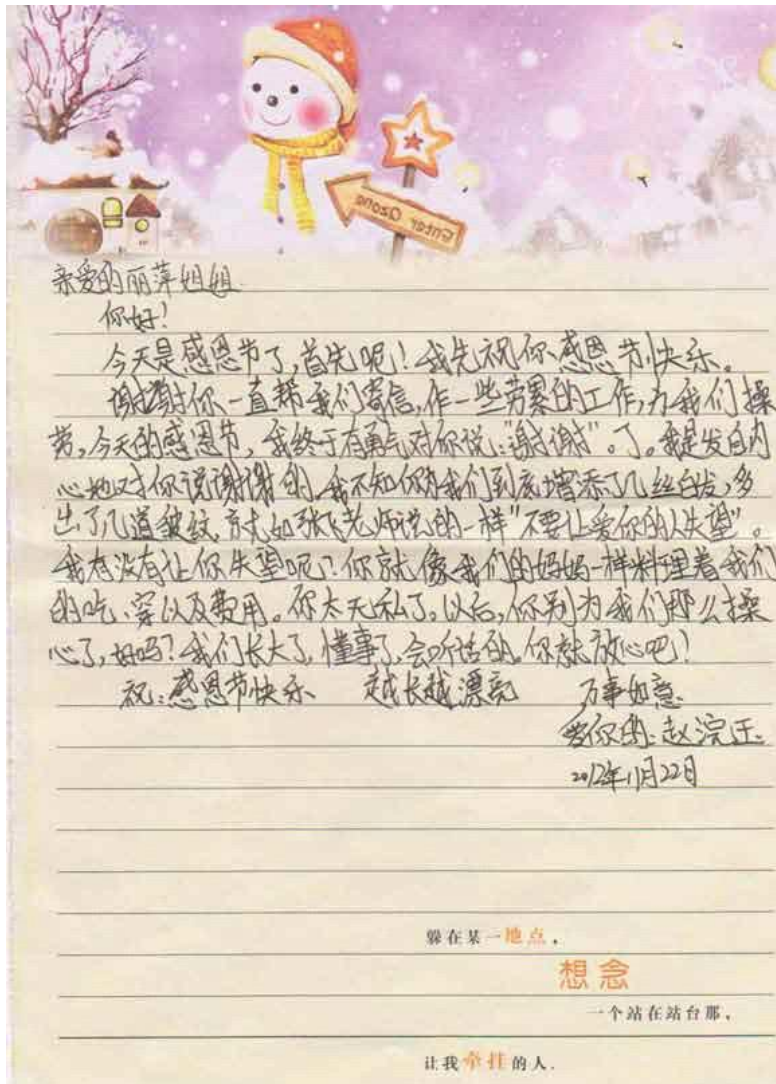 Enter Ozone
亲爱的丽萍姐姐
你好！
今天是感恩节了，首先呢！我先祝你感恩节快乐。
谢谢你一直帮我们寄信，作一些劳累的工作，为我们操
劳，今天的感恩节，我终于有勇气对你说："谢谢"。了。我是发自内
心地对你说谢谢的。我不知你为我们到底增添了几丝白发，多
出了几道皱纹，就如张飞老师说的一样"不要让爱你的人失望"。
我有没有让你失望呢？你就像我们的妈妈一样料理着我们
的吃、穿以及费用。你太无私了，以后，你别为我们那么操
心了，好吗？我们长大了，懂事了，会听话的。你就放心吧！
祝：感恩节快乐 越长越漂亮 万事如意
爱你的：赵浣
2012年11月22日
躲在某一地点，
想念
一个站在站台那，
让我牵挂的人.